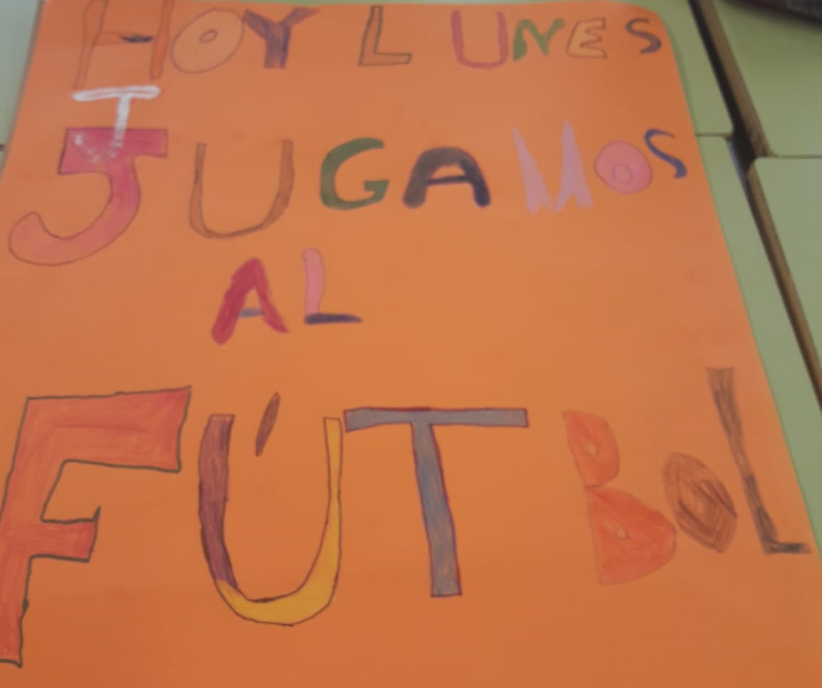 HOY LUNES
JUGAMOS
AL
FÚTBOL